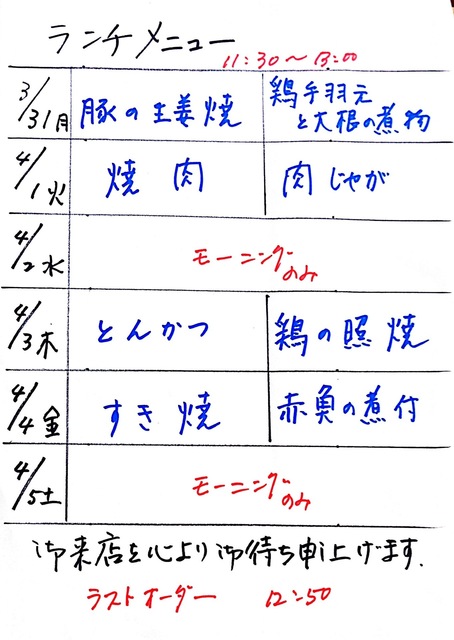 ランチメニュー
11:30～13:00
3/31月 豚の生姜焼 鶏手羽元
と大根の煮物
4/1火 焼肉 肉じゃが
4/2水 モーニング
のみ
4/3木 とんかつ 鶏の照焼
4/4金 すき焼 赤魚の煮付
4/5土 モーニング
のみ
御来店を心より御待ち申上げます.
ラストオーダー 12:50